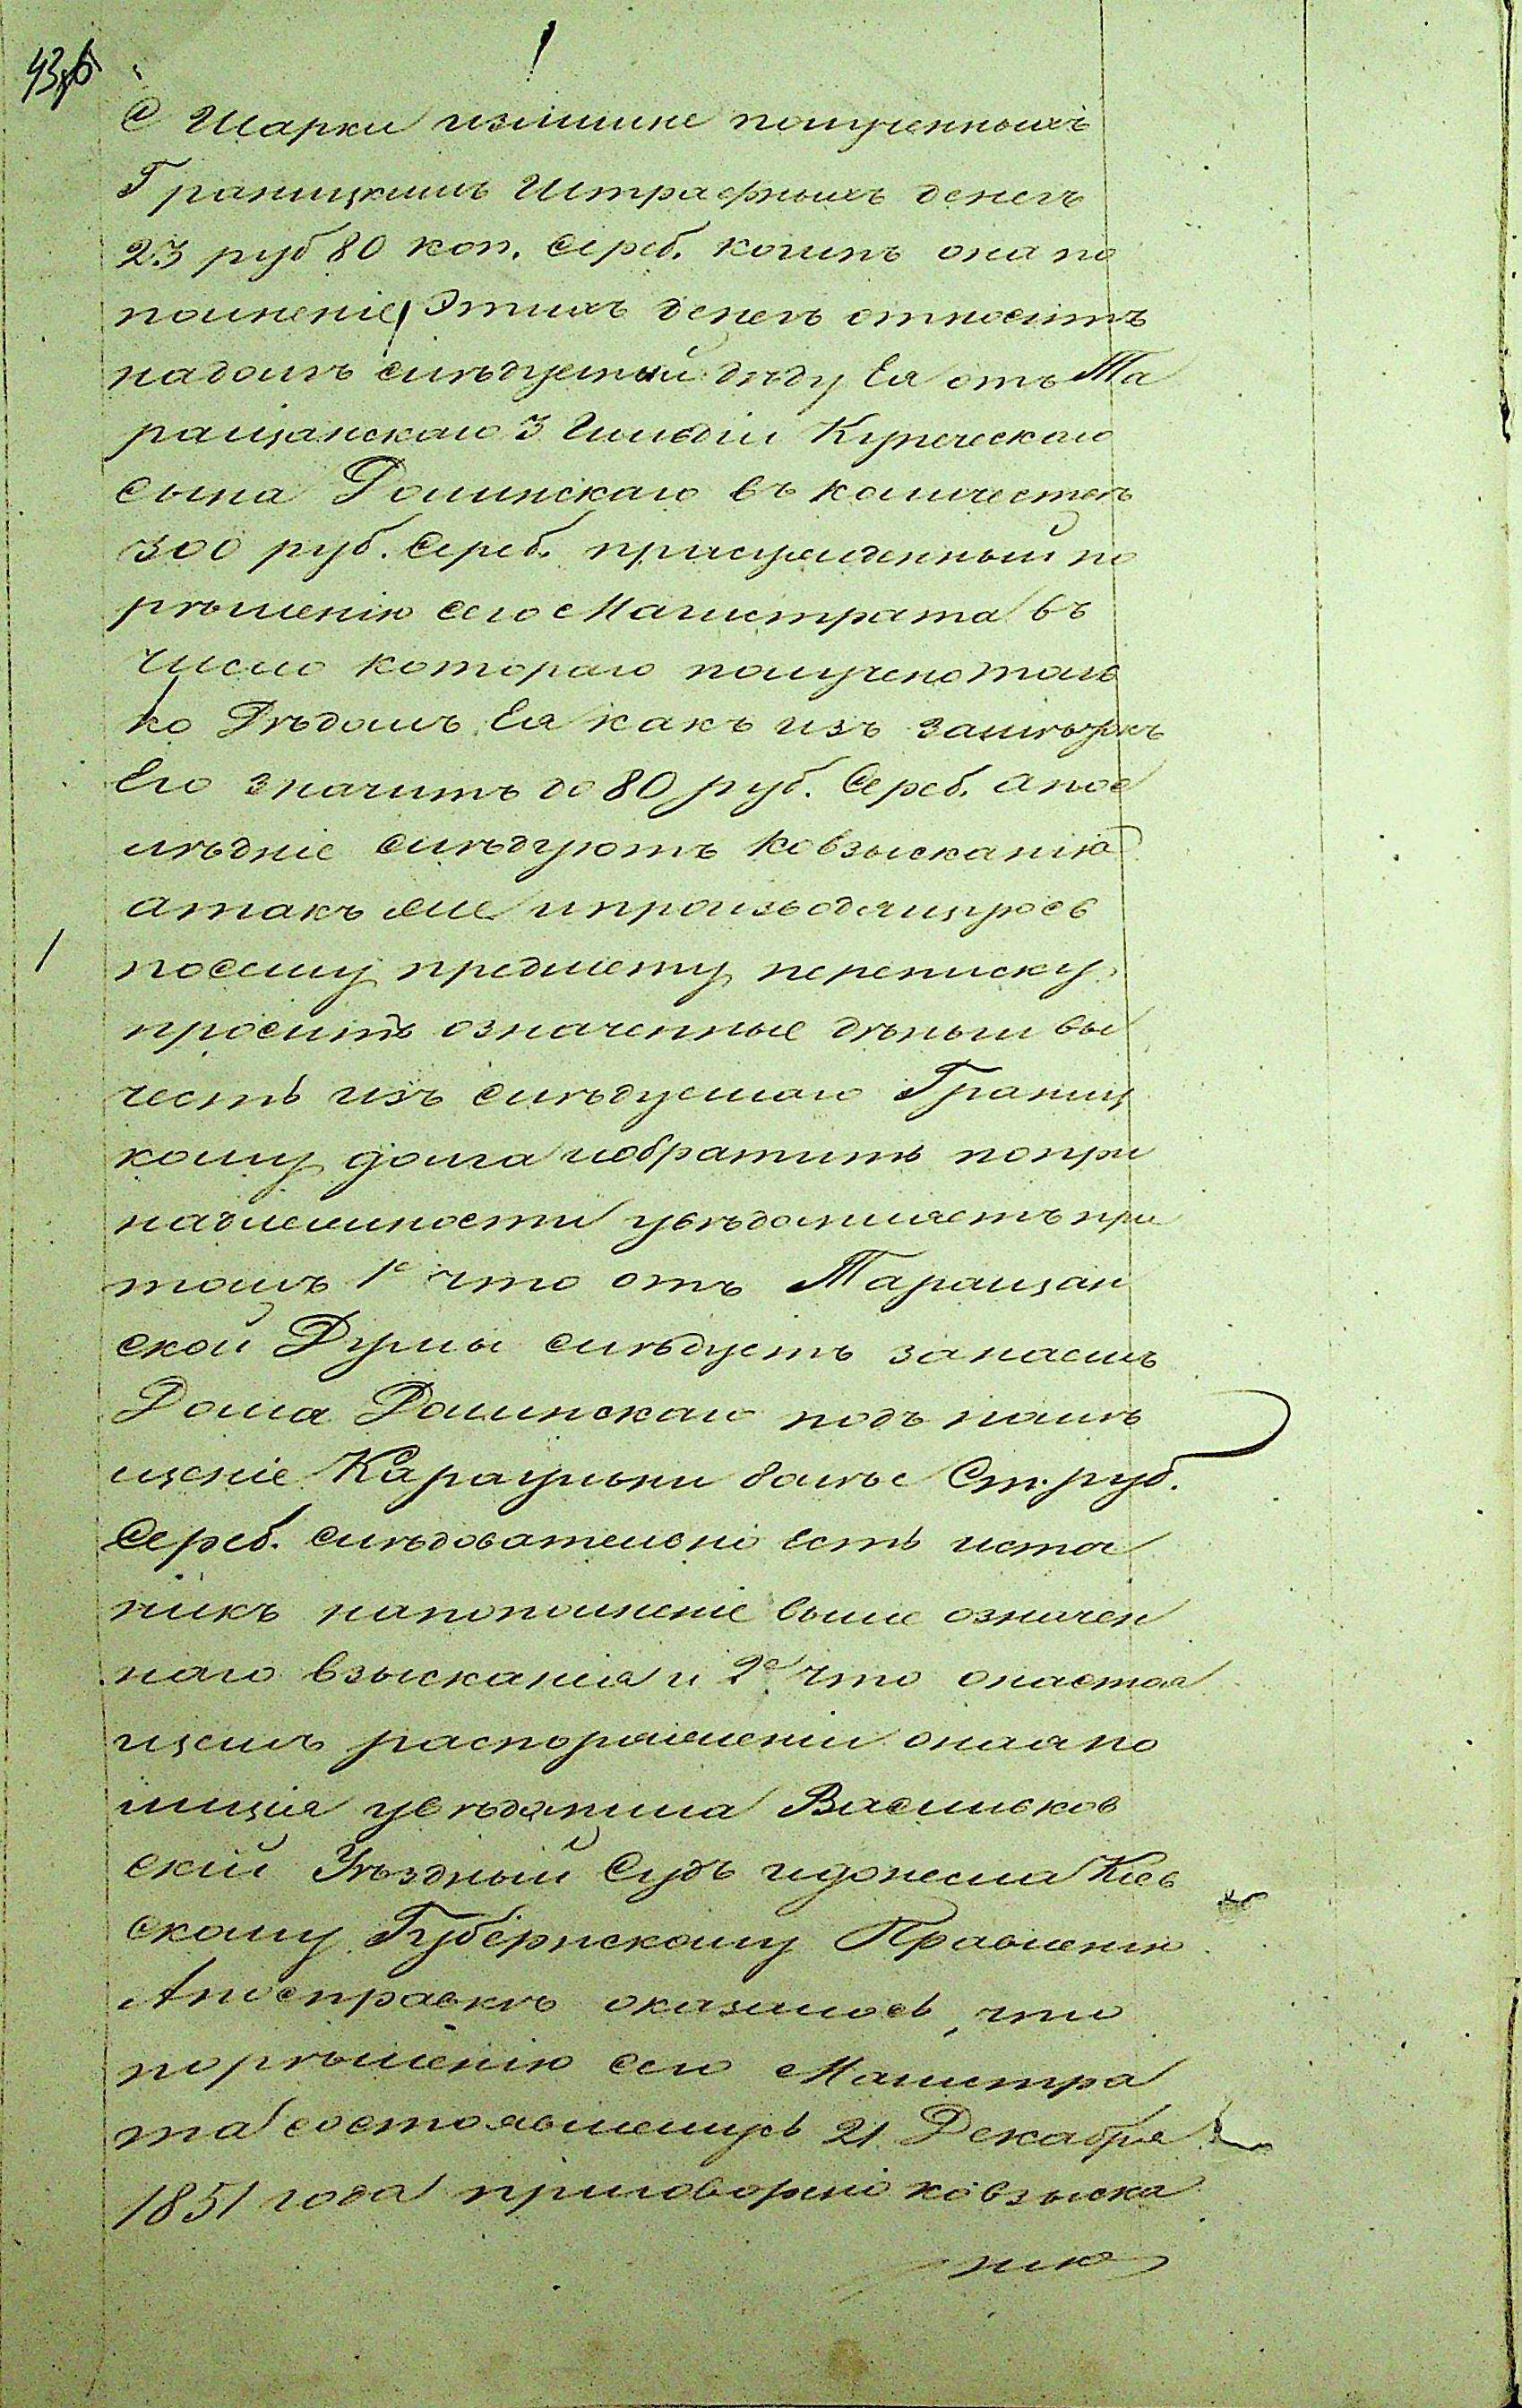 43об
с Шарки излишне полученныхъ
Границкимъ Штрафныхъ денегъ
23 руб 80 коп. Сереб. коимъ она по
полненіе этихъ денегъ относитъ
надолгъ слѣдуемый дѣду Ея отъ Та
ращанскаго 3 Гильдіи Купеческаго
сына Долинскаго въ количествѣ
300 руб. Сереб. присужденный по
рѣшенію сего Магистрата въ
число котораго получено толь
ко Дѣдомъ Ея какъ изъ
Его значитъ до 80 руб. Сереб. апос
лѣдніе слѣдуютъ ковзысканію
атакъ же ипроизводящуюсь
посему предмету переписку
проситъ означенные дѣньги вы
честь изъ слѣдуемаго Границ
кому долга иобратить попри
надлежности увѣдомляетъ при
томъ 1е что отъ Таращан
ской Думы слѣдуетъ занаемъ
Дома Долинскаго подъ помѣ
щеніе Караульни болѣе Ст. руб.
Сереб. слѣдовательно есть источ
никъ напополненіе выше означен
наго взысканія и 2е что онастоя
щемъ распоряженіи оная по
лиція увѣдомила Васильков
скій Уѣздный Судъ идонесла Кіев
скому Губернскому Правленію
Апосправкѣ оказалось, что
порѣшенію сего Магистра
та состоявшемусь 21 Декабря
1851 года приговорено ковзыска
нію